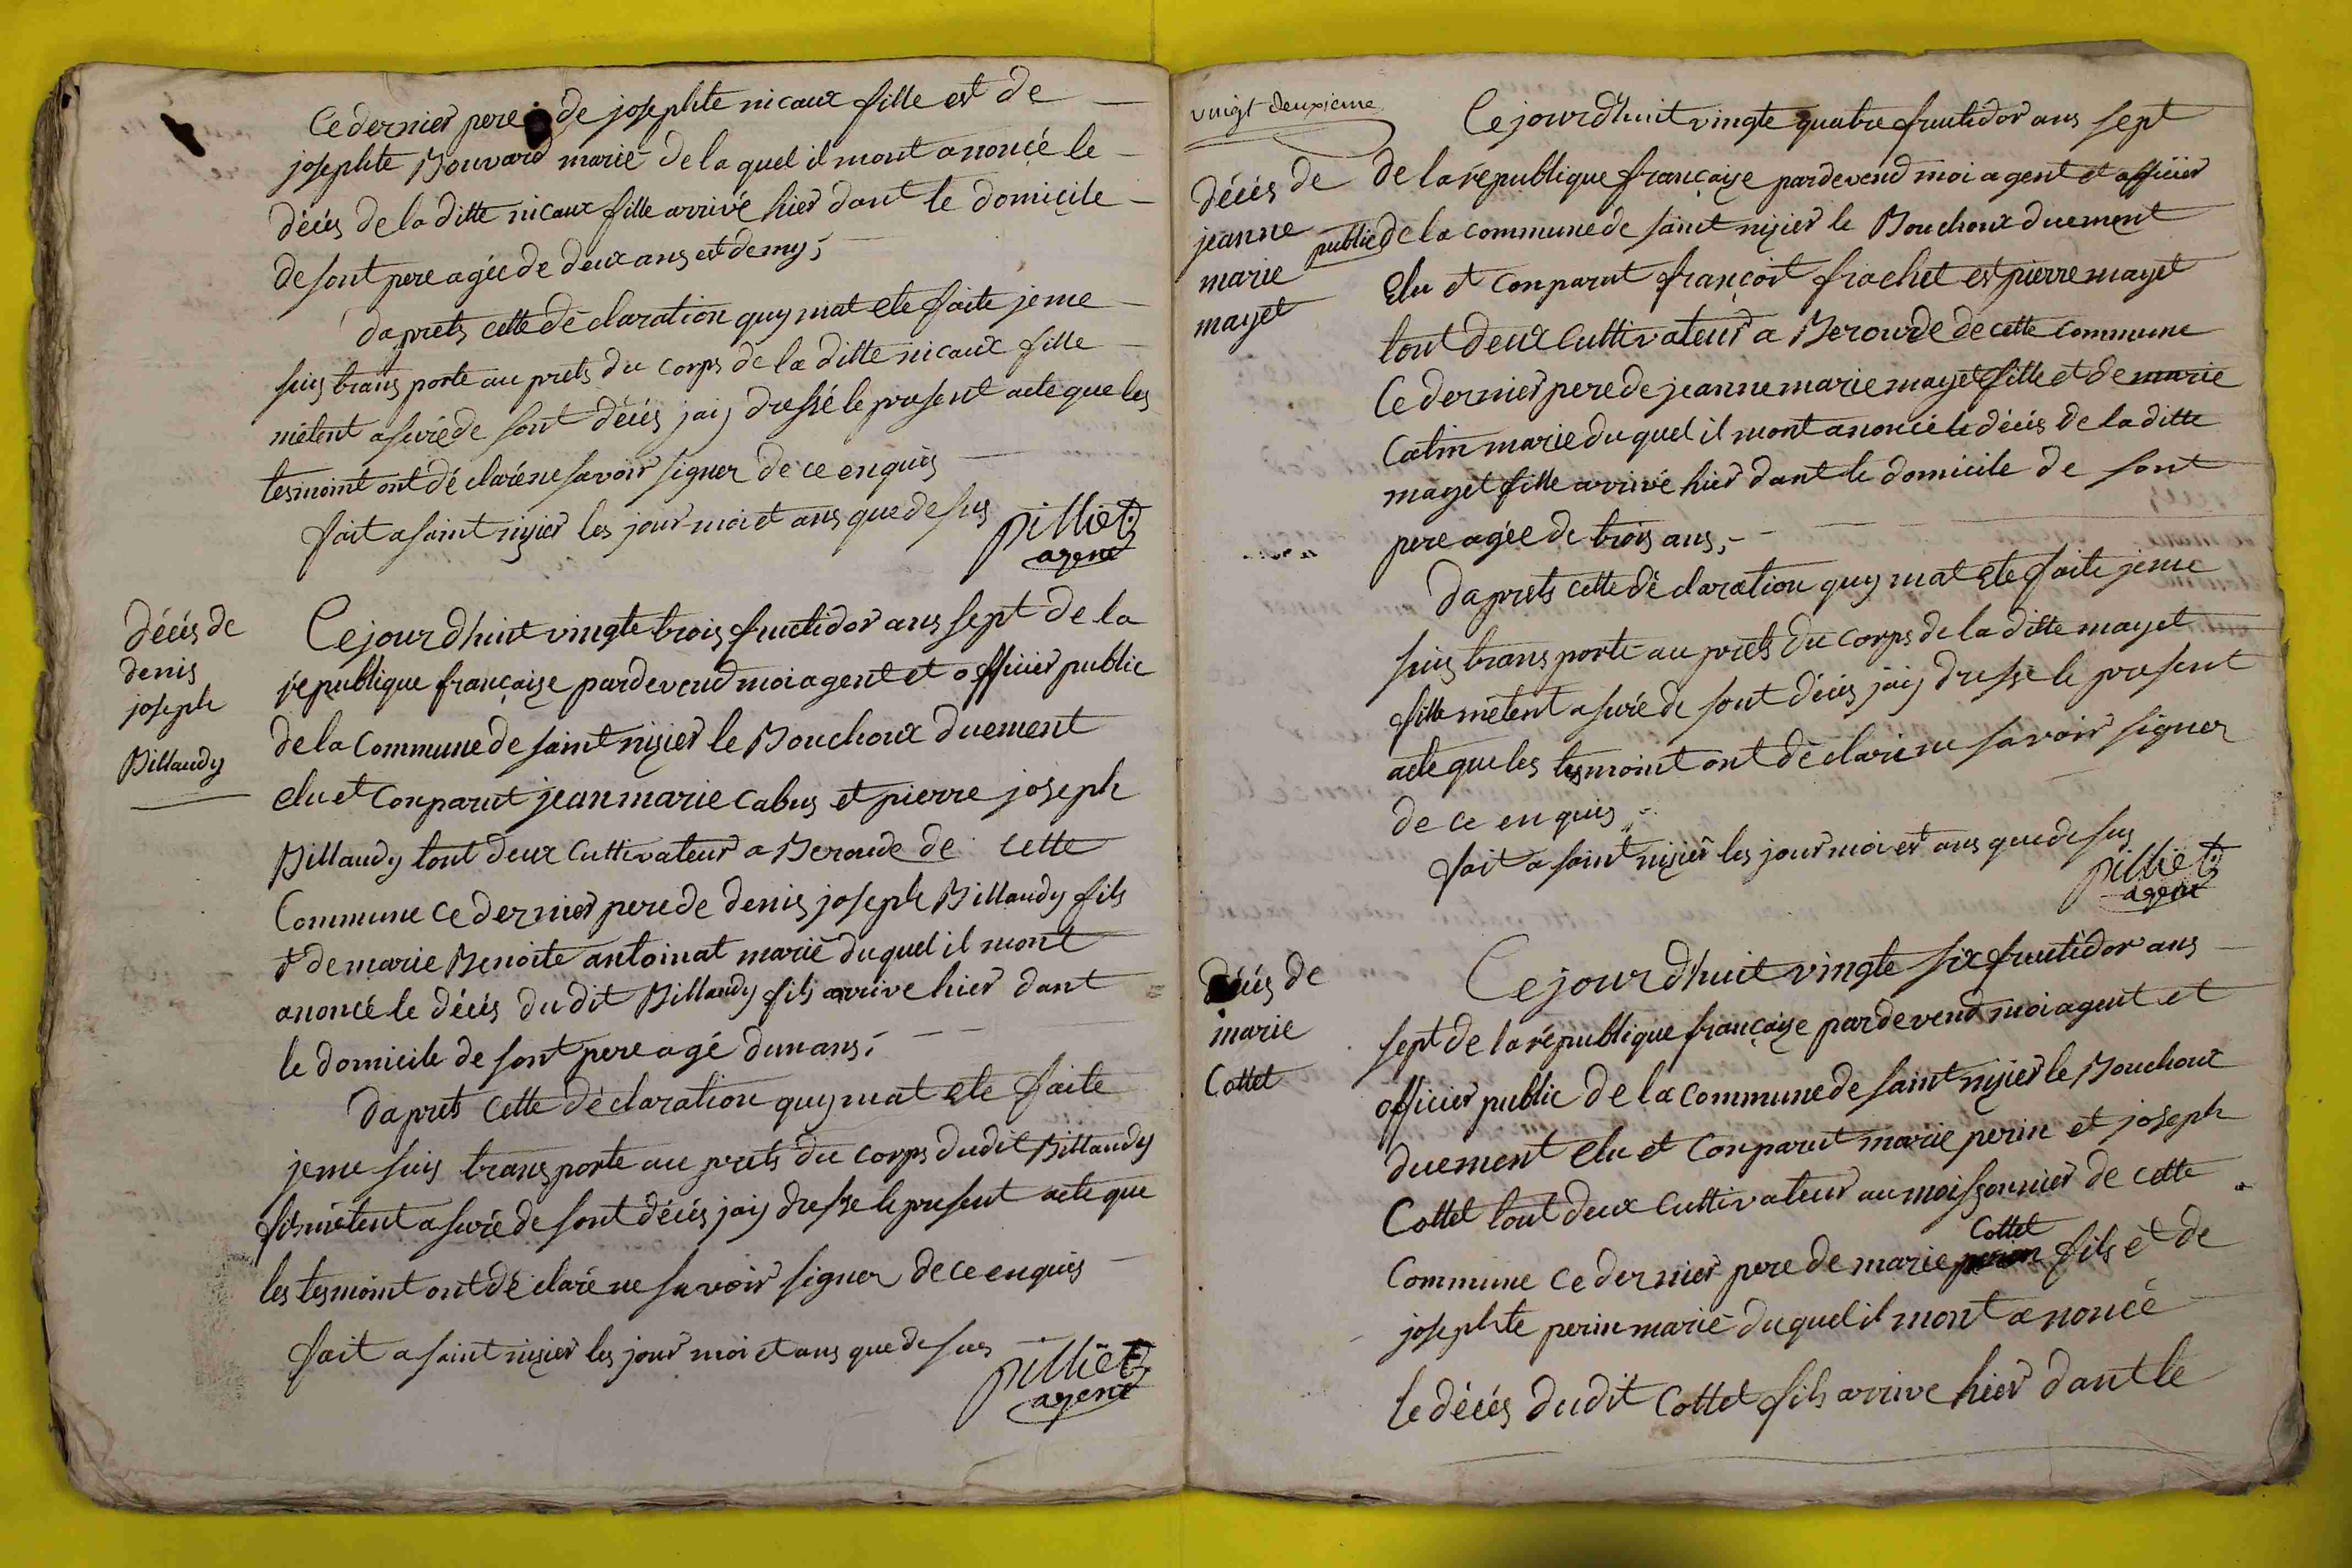 Ce dernier pere de josephte nicaux fille est de
josephte Bouvard marié de la quel il mont anoncé le
décés de la ditte nicaux fille arrivé hier dant le domicile
de sont pere agée de deux ans et demy ;
daprets cette déclaration quy mat ete faite je me
suis trans porte au prets du corps de la ditte nicaux fille
métent asuré de sont décés jaiy dressé le present acte que les
tesmoint ont déclaré ne savoir signer de ce enquis
fait a saint nizier les jour moi et ans que de sus
pilliet
agent
décés de
denis
joseph
Billaudy
Ce jourdhuit vingte trois fructidor ans sept de la
république française pardevend moi agent et officier public
de la Commune de saint nizier le Bouchoux duement
elu et Conparut jean marie cabus et pierre joseph
Billaudy tout deux Cultivateur a Beroude de cette
Commune ce dernier pere de denis joseph Billaudy fils
& de marie Benoite antoinat marié duquel il mont
anoncé le décés dudit Billaudy fils arrive hier dant
le domicile de sont pere agé dun ans ;
daprets cette déclaration quy mat ete faite
je me suis trans porte au prets du corps dudit Billaudy
fils métent asuré de sont décés jaiy dresse le present acte que
les tesmoint ont déclaré ne savoir signer de ce enquis
fait a saint nizier les jour moi et ans que de sus
pilliet
agent
vingt deuxieme
décés de
jeanne
marie
mayet
Ce jourdhuit vingte quatre fructidor ans sept
de la république française pardevend moi agent et officier
public de la commune de saint nizier le Bouchoux duement
Elu et Conparut françoit frachet est pierre mayet
tout deux Cultivateur a Beroude de cette commune
Ce dernier pere de jeanne marie mayet fille et de marie
Catin marie duquel il mont anoncé le décés de la ditte
mayet fille arrivé hier dant le domicile de sont
pere agée de trois ans ;
daprets cette déclaration quy mat ete faite je me
suis trans porte au prets du corps de la ditte mayet
fille métent asuré de sont décés jaiy dresse le present
acte que les tesmoint ont déclaré ne savoir signer
de ce enquis
fait a saint nizier les jour moi et ans que de sus
pilliet
agent
décés de
marie
Cottet
Ce jourdhuit vingte six fructidor ans
sept de la république française pardevend moi agent et
officier public de la Commune de saint nizier le Bouchoux
duement elu et Conparut marie perin et joseph
Cottet tout deux Cultivateur au moissonnier de cette
Cottet
Commune ce dernier pere de marie fils et de
josephte perin marié duquel il mont anoncé
le décés dudit Cottet fils arrive hier dant le